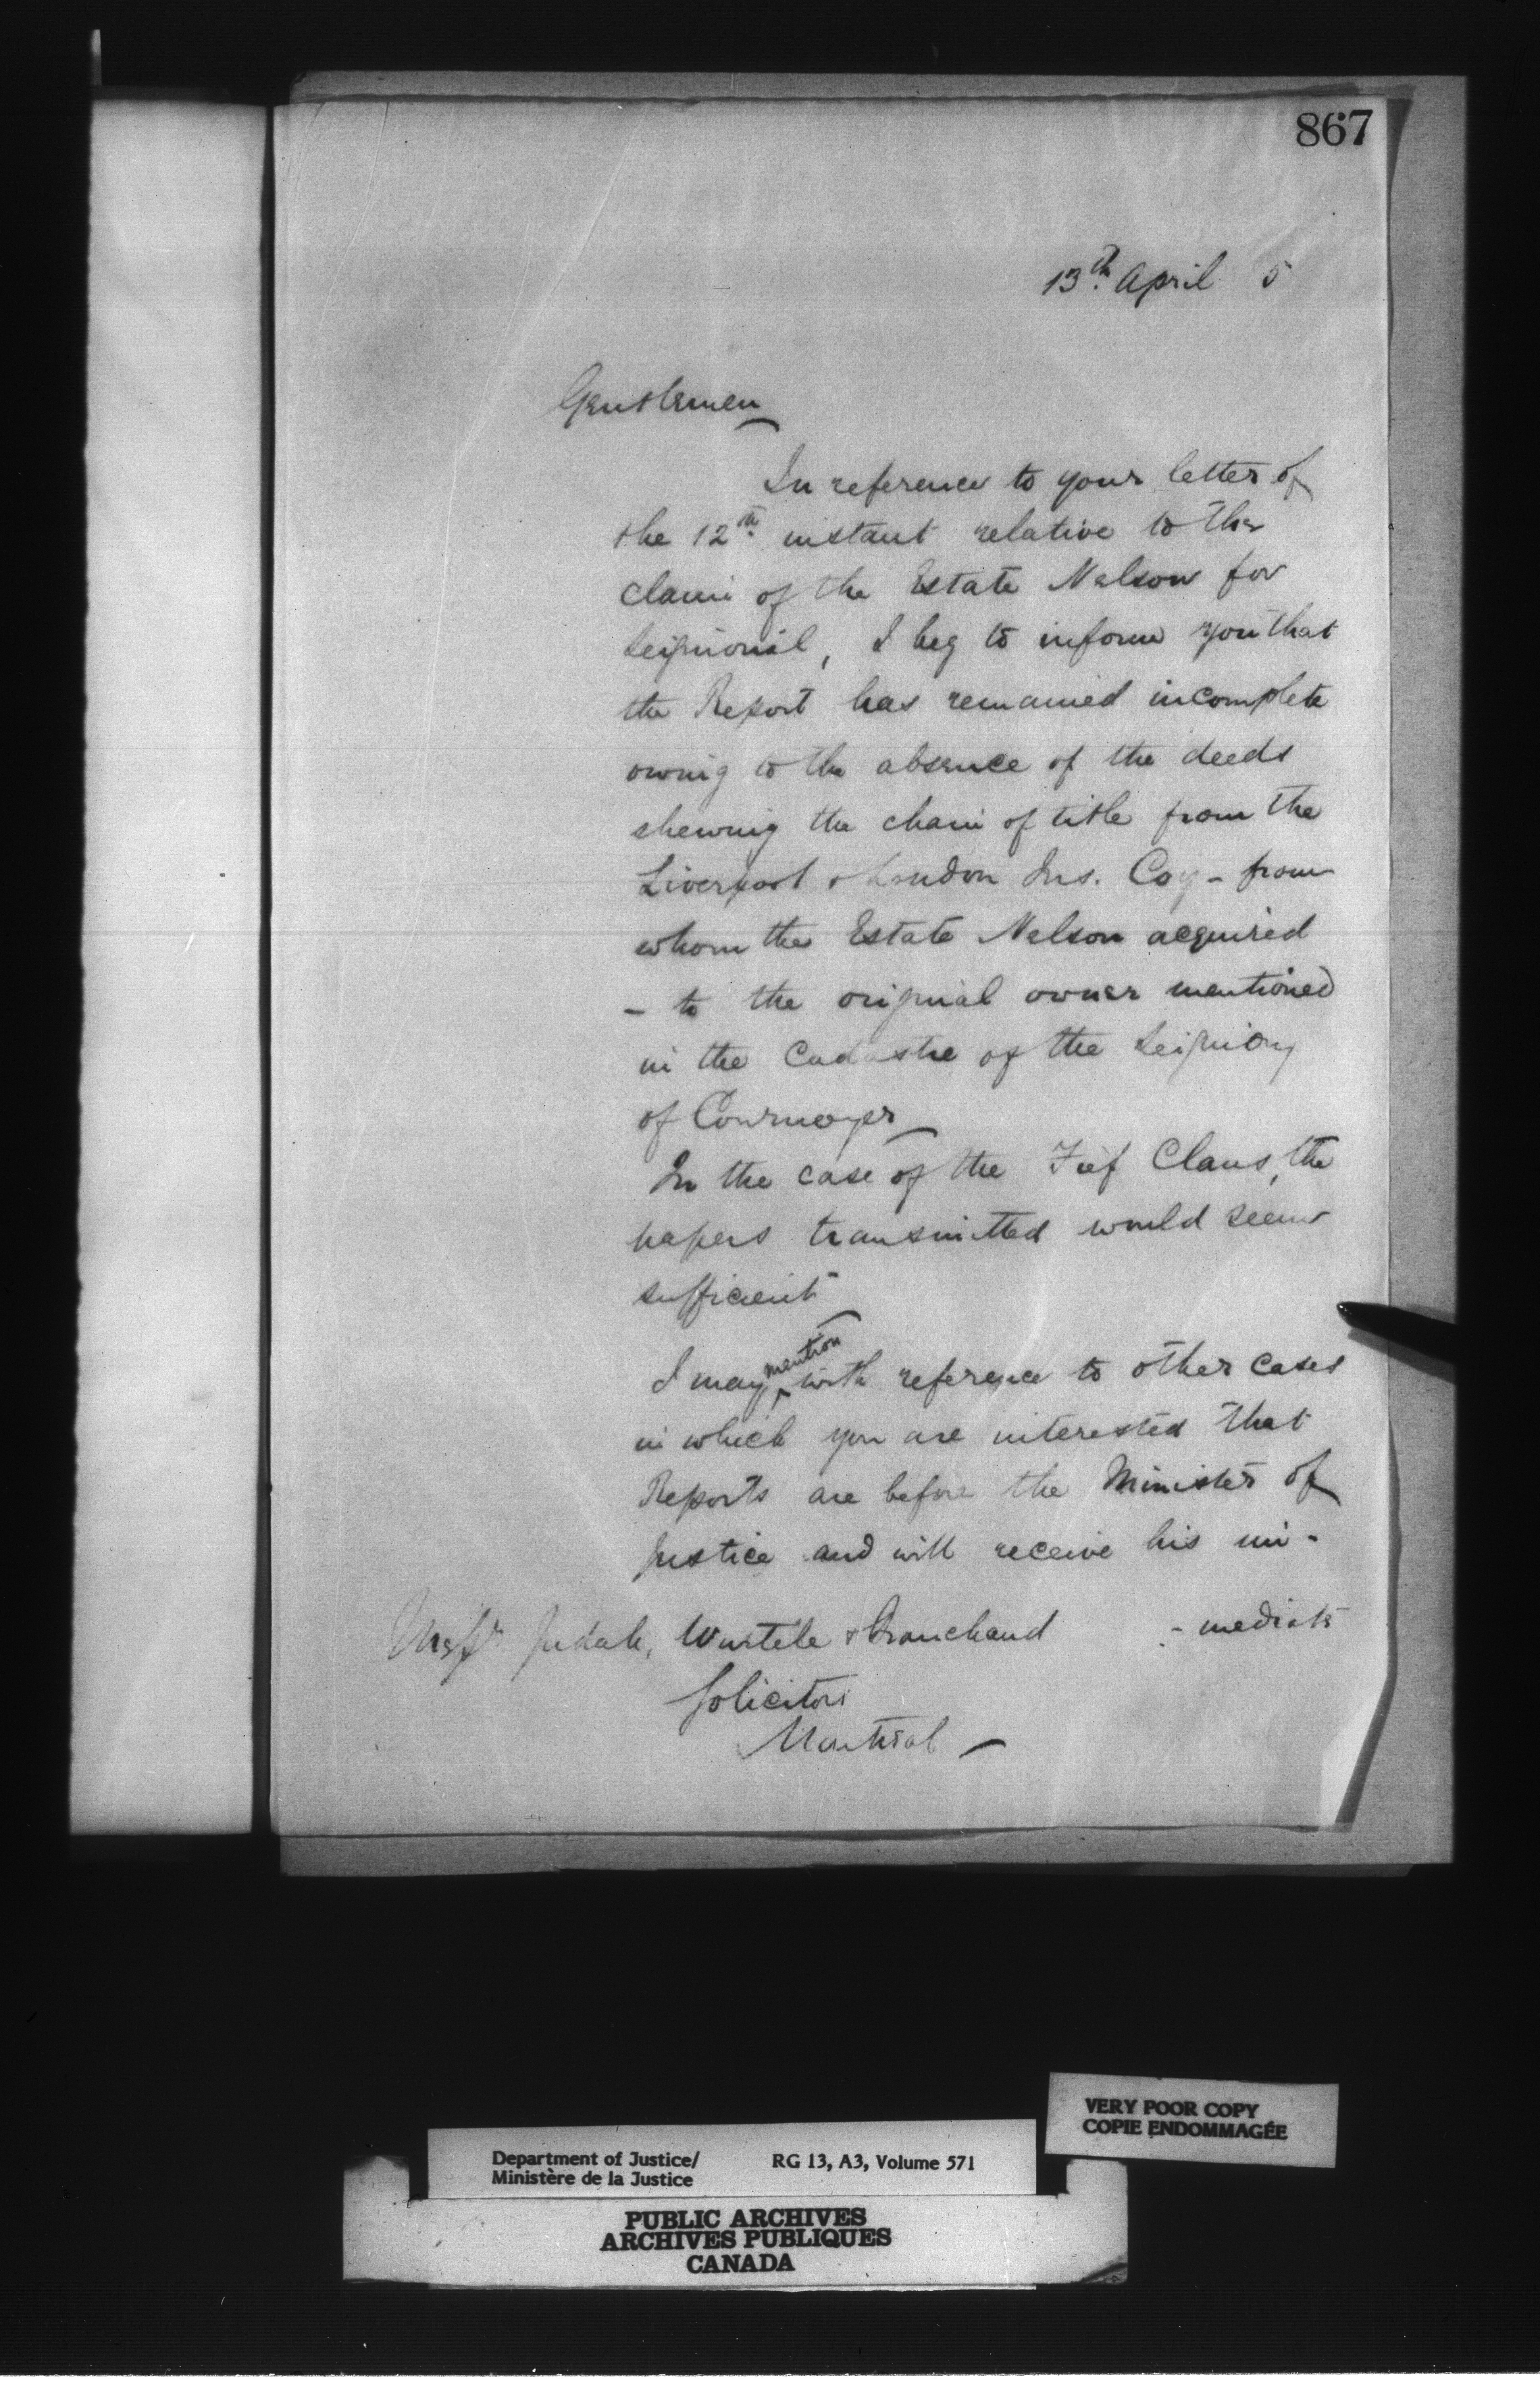 867
13th. April 5
Gentlemen
In reference to your letter of
the 12th. instant relative to the
claim of the Estate Nelson for
Seignorial, I beg to inform you that
the Report has remained incomplete
owing to the absence of the deeds
shewing the chain of title from the
Liverpool & London Ins. Coy - from
whom the Estate Nelson acquired
- to the original owner mentioned
in the Cadastre of the Seigniory
of Cournoyer
In the case of the Fief Claus, the
papers transmitted would seem
sufficient
I may mention with reference to other cases
in which you are interested that
Reports are before the Minister of
Justice and will receive his im-
- mediate
Messrs Judah, Wurtele & Branchaud
Solicitors
Montreal -
VERY POOR COPY
COPIE ENDOMMAGÉE
Department of Justice/ RG 13, A3, Volume 571
Ministère de la Justice
PUBLIC ARCHIVES
ARCHIVES PUBLIQUES
CANADA